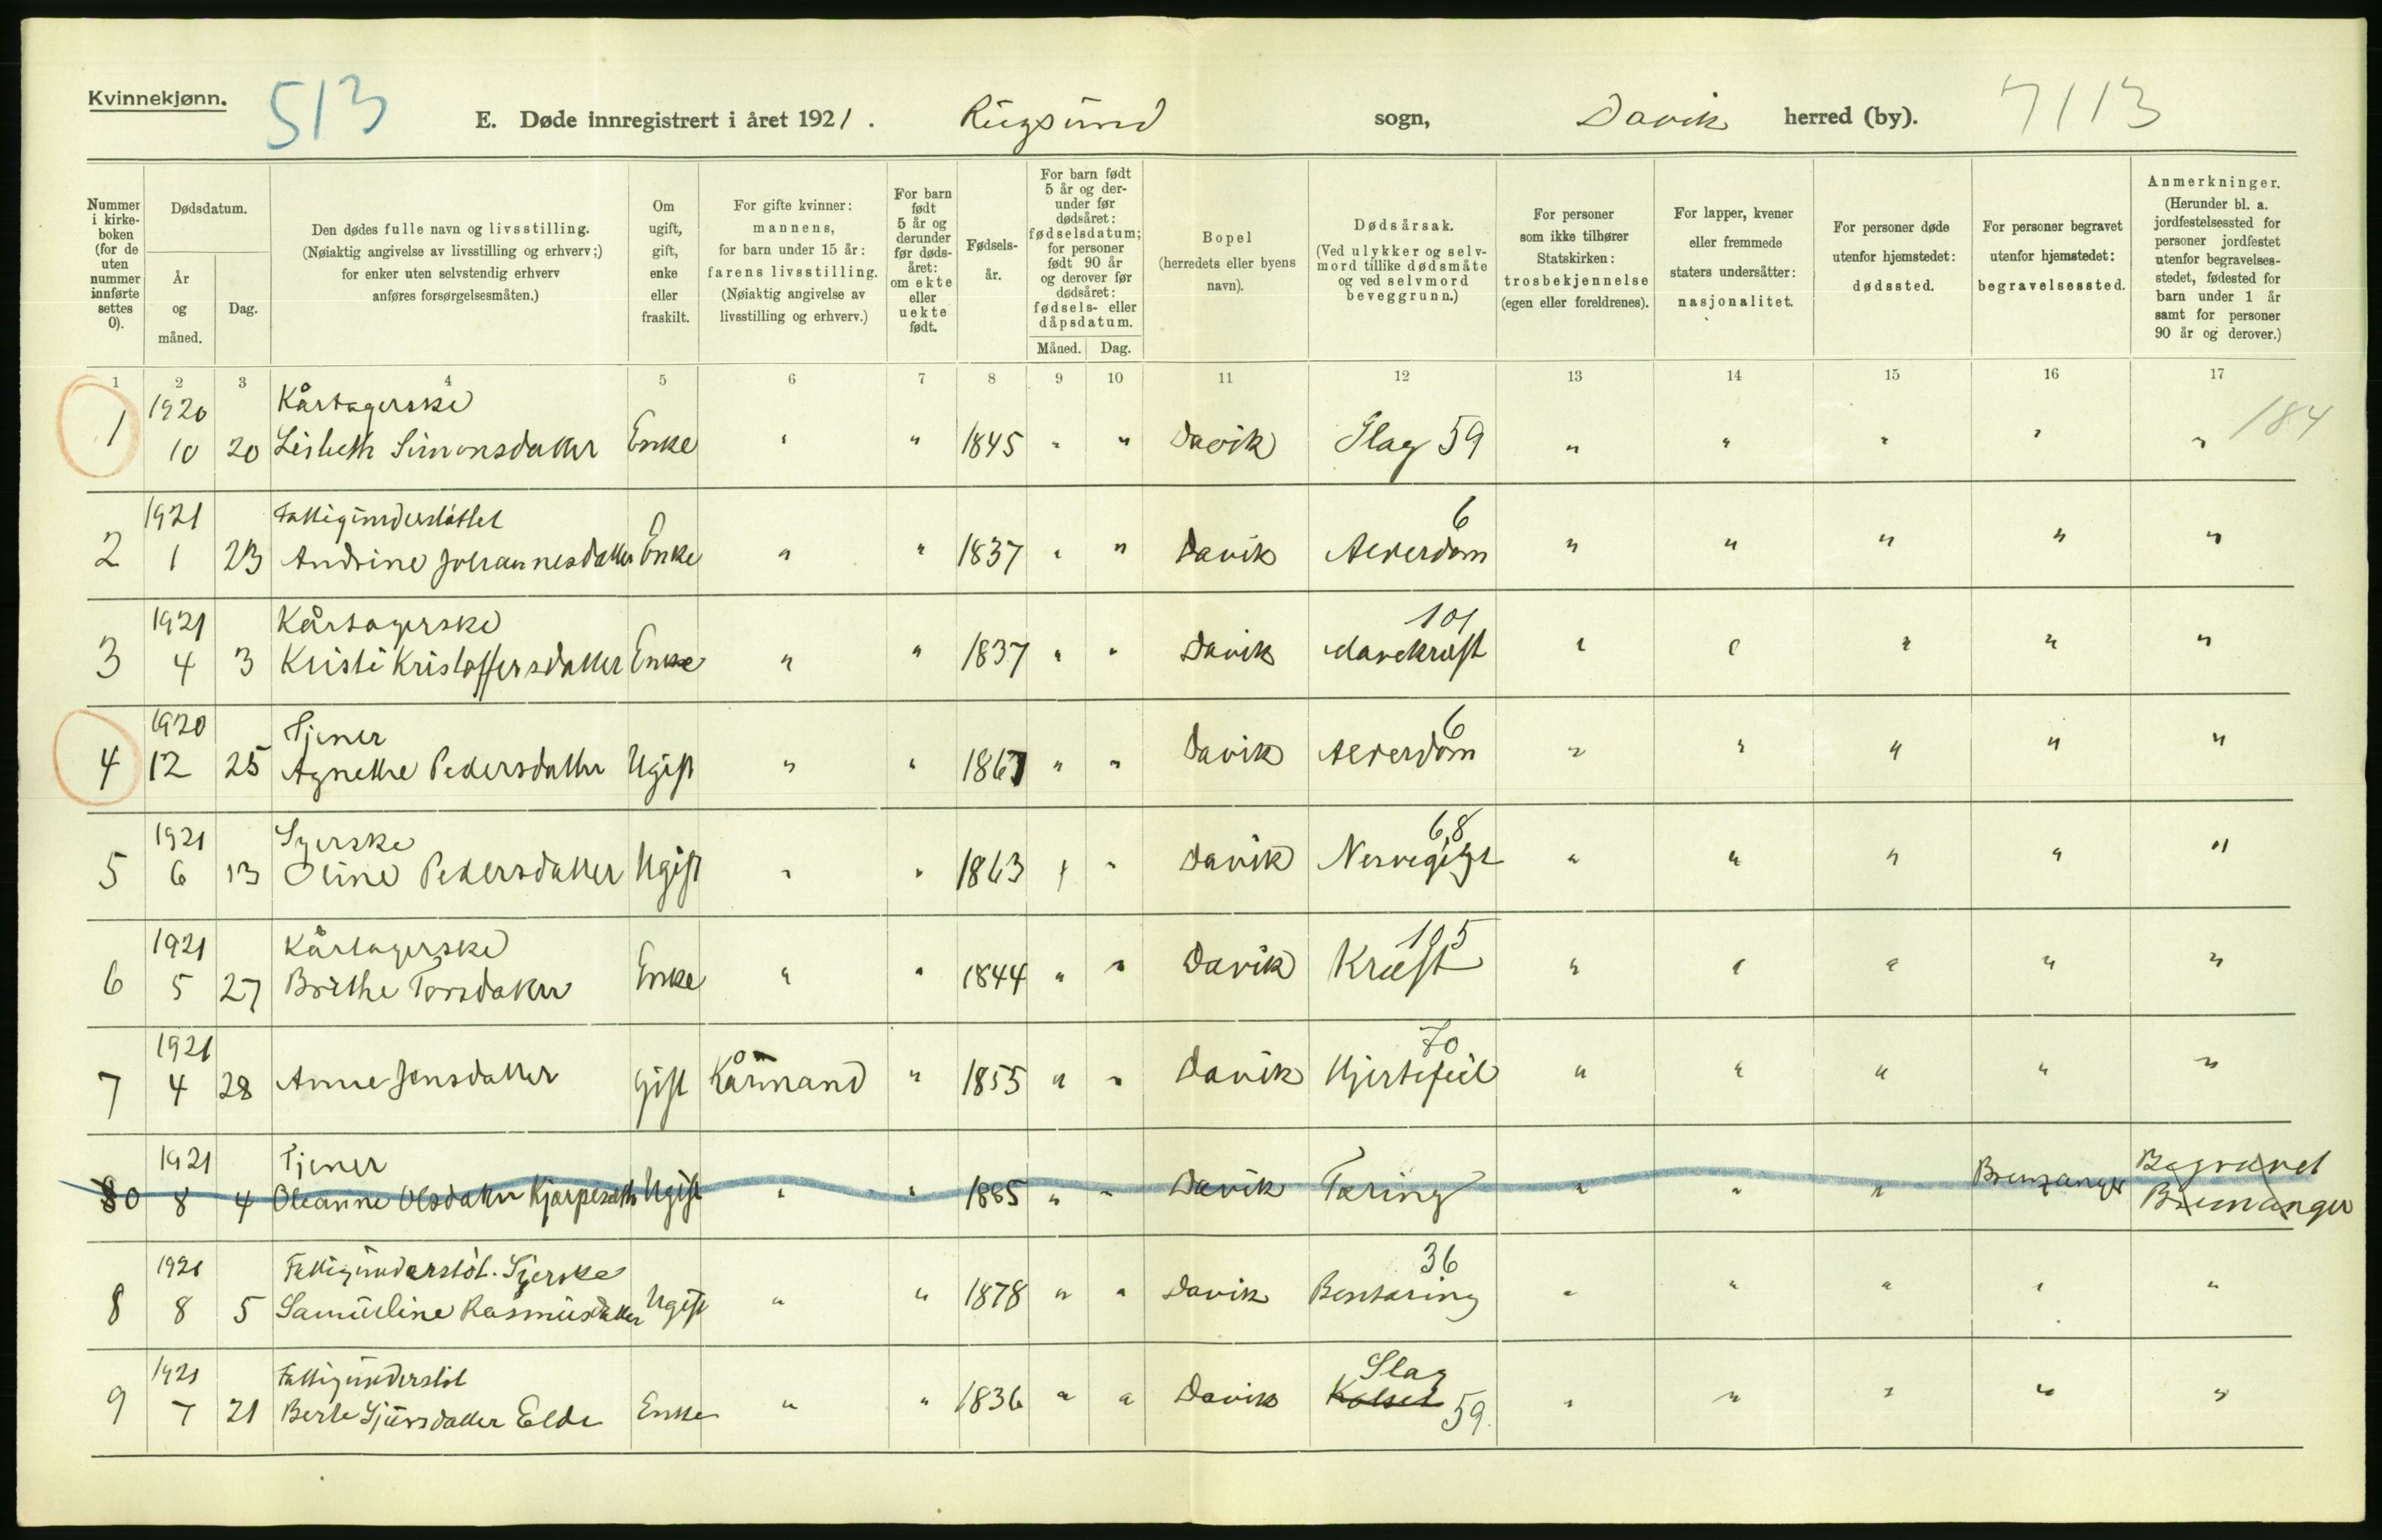 Kvinnekjønn.
513
E. Døde innregistrert i året 1921. Rugsund sogn, Davik herred (by). 7113
Nummer i kirke-boken (for de uten nummer innførte settes 0).
Dødsdatum.
År og måned.
Dag.
Den dødes fulle navn og livsstilling.
(Nøiaktig angivelse av livsstilling og erhverv;)
for enker uten selvstendig erhverv
anføres forsørgelsesmåten.)
Om ugift, gift, enke eller fraskilt.
For gifte kvinner:
mannens,
for barn under 15 år:
farens livsstilling.
(Nøiaktig angivelse av
livsstilling og erhverv.)
For barn født 5 år og derunder før døds-året: om ekte eller uekte født.
Fødsels-år.
For barn født 5 år og der-under før dødsåret: fødselsdatum; for personer født 90 år og derover før dødsåret: fødsels- eller dåpsdatum.
Måned. Dag.
Bopel
(herredets eller byens
navn).
Dødsårsak.
(Ved ulykker og selv-
mord tillike dødsmåte
og ved selvmord
beveggrunn.)
For personer
som ikke tilhører
Statskirken:
trosbekjennelse
(egen eller foreldrenes).
For lapper, kvener
eller fremmede
staters undersåtter:
nasjonalitet.
For personer døde
utenfor hjemstedet:
dødssted.
For personer begravet
utenfor hjemstedet:
begravelsessted.
Anmerkninger.
(Herunder bl. a.
jordfestelsessted for
personer jordfestet
utenfor begravelses-
stedet, fødested for
barn under 1 år
samt for personer
90 år og derover.)
1 2 3 4 5 6 7 8 9 10 11 12 13 14 15 16 17
1920 Kårtagerske
1 10 20 Lisbeth Simonsdatter Enke " " 1845 " " Davik Slag 59 " " " " " 184
1921 Fattigunderstøttet 6
2 1 23 Andrine Johannesdatter Enke " " 1837 " " Davik Alderdom " " " " "
1921 Kårtagerske 101
3 4 3 Kristi Kristoffersdatter Enke " " 1837 " " Davik Mavekræft " " " " "
1920 Tjener 6
4 12 25 Agnethe Pedersdatter Ugift " " 1867 " " Davik Alderdom " " " " "
1921 Syerske 6,8
5 6 13 Oline Pedersdatter Ugift " " 1863 " " Davik Nervegigt " " " " "
1921 Kårtagerske 105
6 5 27 Brithe Torsdatter Enke " " 1844 " " Davik Kræft " " " " "
1921 70
7 4 28 Anne Jensdatter gift Kårmand " 1855 " " Davik Hjertefeil " " " " "
1921 Tjener Begravet
0 8 4 Oleanne Olsdatter Ugift " " 1885 " " Davik Tæring " " " Bremanger Bremanger
1921 Fattigunderstøt. Syerske 36
8 8 5 Samueline Rasmusdatter Ugift " " 1878 " " Davik Bentæring " " " " "
1921 Fattigunderstøt Slag
9 7 21 Berte Sjursdatter Elde Enke " " 1836 " " Davik 59. " " " " "